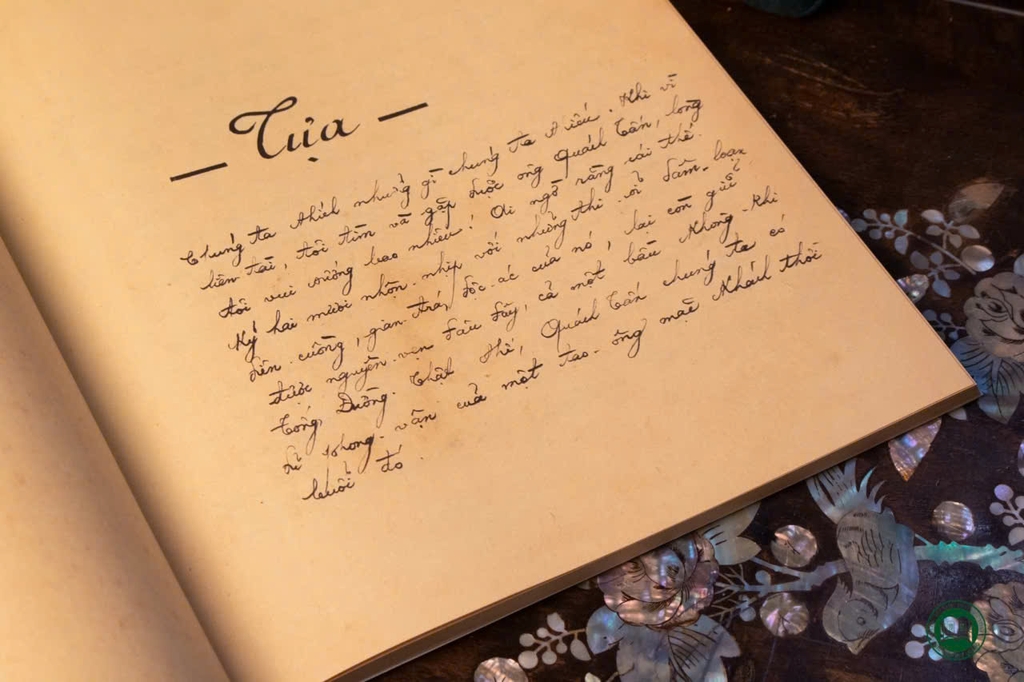 Tựa
Chúng ta thích những gì chúng ta thiếu. Khi vì
liên tài, tôi tìm và gặp được ông Quách Tấn, lòng
tôi vui sướng bao nhiêu! Ai ngờ rằng cái thế
Kỷ hai mươi nhôn-nhịp với những thói dâm-loạn,
điên-cuồng, gian-trá, độc-ác của nó, lại còn giữ
được nguyên-vẹn đâu đây, cả một bầu không-khí
Tống, Đường. Thật thế, Quách Tấn chúng ta có
đủ phong-vận của một tao-ông mặc khách thời
buổi đó.